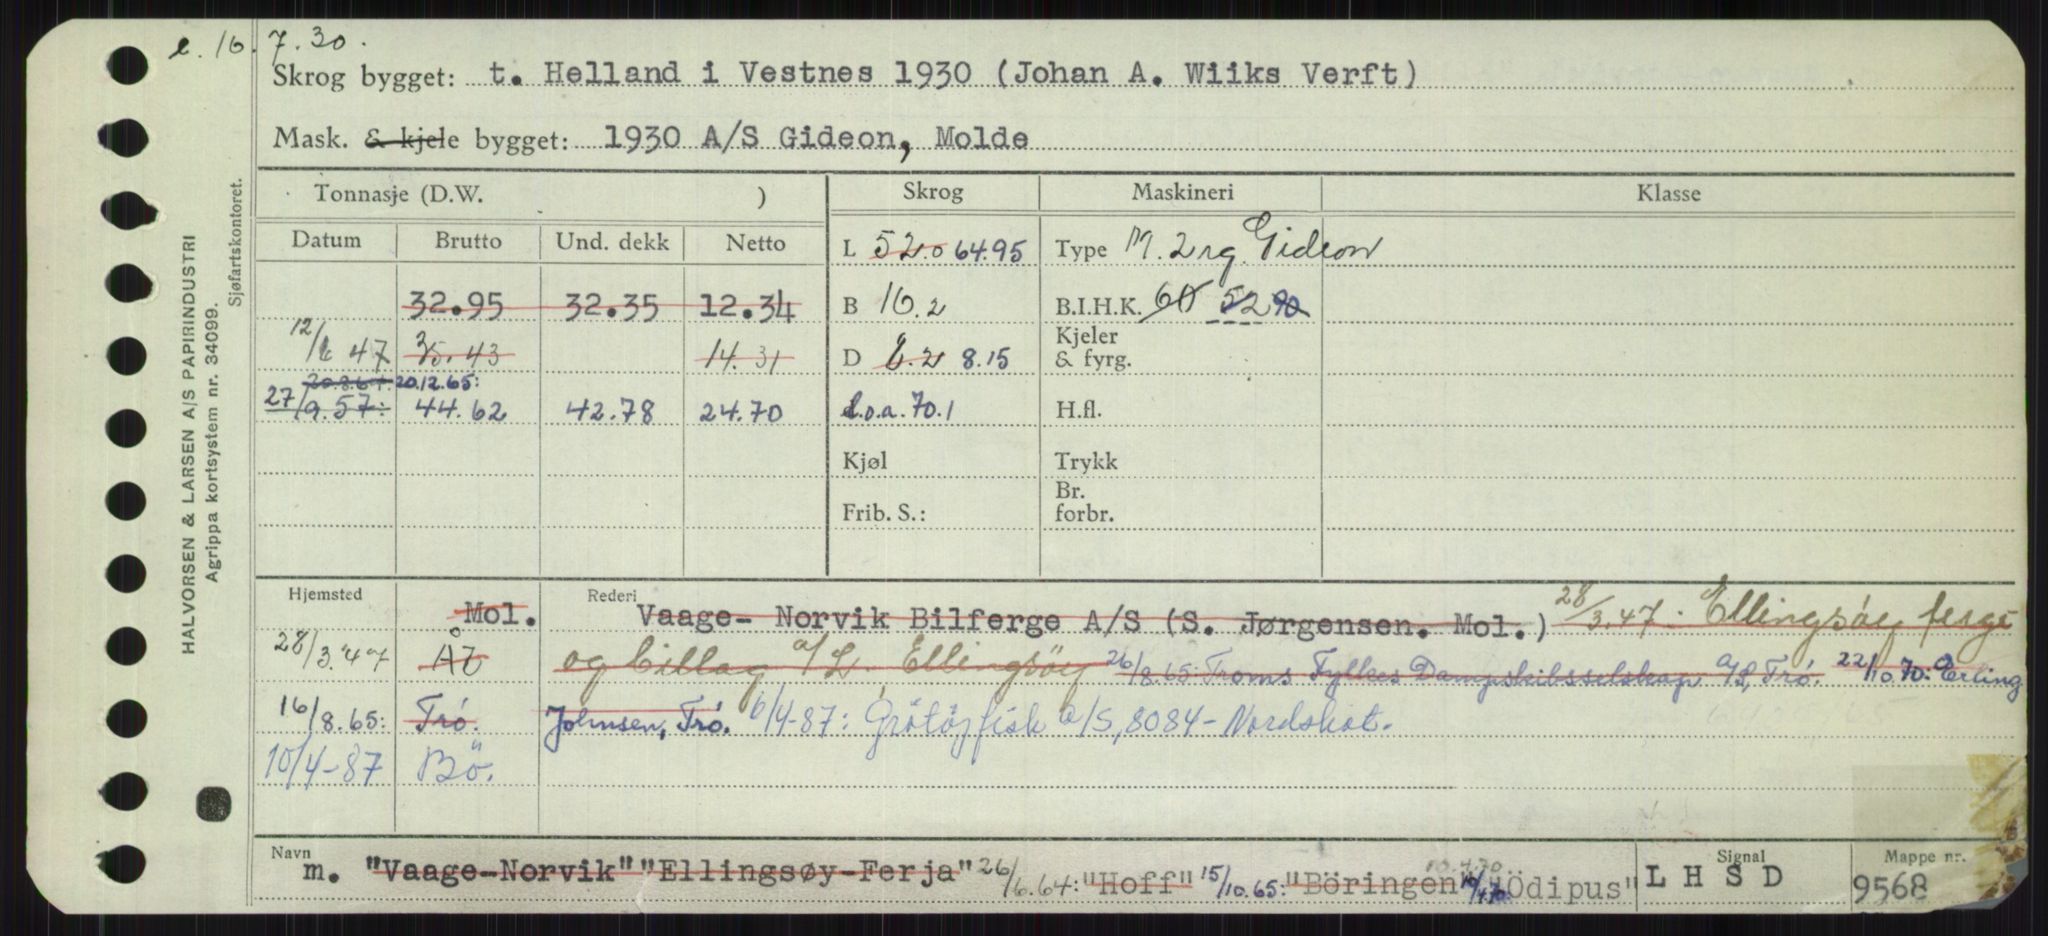 e. 16.7.30.
Skrog bygget: t. Helland i Vestnes 1930 (Johan A. Wiiks Verft)
Mask. & kjele bygget: 1930 A/S Gideon, Molde
HALVORSEN & LARSEN A/S PAPIRINDUSTRI
Agrippa kortsystem nr. 34099.
Sjøfartskontoret.
Tonnasje (D.W. ) Skrog Maskineri Klasse
Datum Brutto Und. dekk Netto
L 52.0 64.95 Type M. 2 rg. Gideon
32.95 32.35 12.34 B 16.2 B.I.H.K. 60 52 90
12/6 47 35.43 14.31 D 8.2 8.15 Kjeler & fyrg.
20.8.64. 20.12.65:
27/9.57: 44.62 42.78 24.70 L.o.a. 70.1 H.fl.
Kjøl Trykk
Frib. S.: Br. forbr.
Hjemsted Rederi
Mol. Vaage- Norvik Bilferge A/S (S. Jørgensen. Mol.) 28/3.47. Ellingsøy ferge
28/3.47 Ål og billag a/L, Ellingsöy 26/8.65: Troms Fylkes Dampskibsselskap A/S, Trö. 22/10.70: Erling
16/8.65: Trö. Johnsen, Trö. 6/4-87: Grötöyfisk a/s, 8084- Nordskot.
10/4-87 Bö.
Navn
m. "Vaage-Norvik" "Ellingsøy-Ferja" 26/6.64: "Hoff" 15/10.65: "Böringen" 10.4.70 10/4.70: "Ödipus"
Signal
L H S D
Mappe nr.
9568